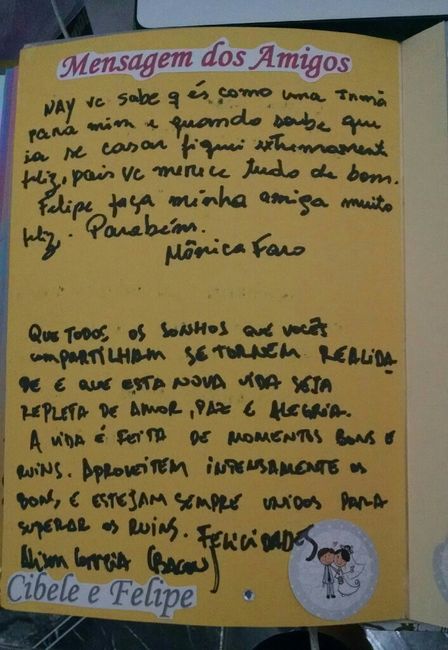 Mensagem dos Amigos
NAY vc sabe q és como uma Irmã
para mim e quando soube que
ia se casar fiquei extremamente
feliz, pois vc merece tudo de bom.
Felipe faça minha amiga muito
feliz. Parabéns.
Mônica Faro
QUE TODOS OS SONHOS QUE VOCÊS
COMPARTILHAM SE TORNEM REALIDA
DE E QUE ESTA NOVA VIDA SEJA
REPLETA DE AMOR, PAZ E ALEGRIA.
A VIDA É FEITA DE MOMENTOS BONS E
RUINS. APROVEITEM INTENSAMENTE OS
BONS, E ESTEJAM SEMPRE UNIDOS PARA
SUPERAR OS RUINS. FELICIDADES
(BACON)
Cibele e Felipe